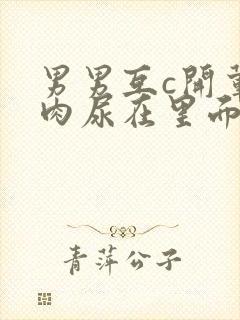 男男互c開葷
肉尿在里而
青萍公子